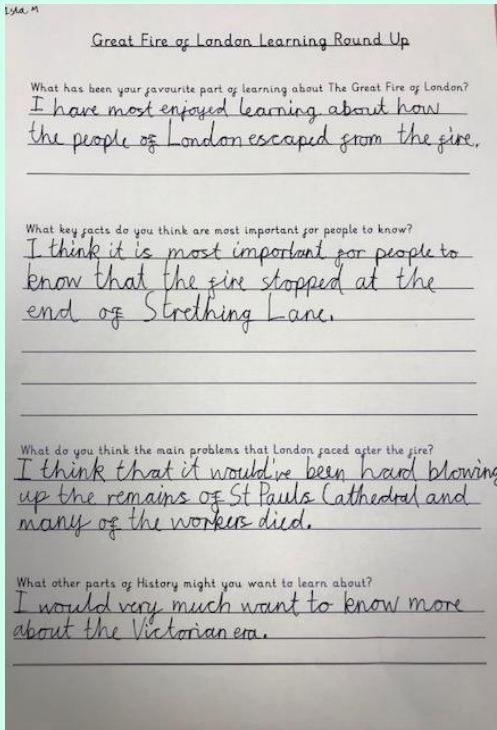 Isla M
Great Fire of London Learning Round Up
What has been your favourite part of learning about The Great Fire of London?
I have most enjoyed learning about how
the people of London escaped from the fire.
What key facts do you think are most important for people to know?
I think it is most important for people to
know that the fire stopped at the
end of Strething Lane.
What do you think the main problems that London faced after the fire?
I think that it would've been hard blowing
up the remains of St Pauls Cathedral and
many of the workers died.
What other parts of History might you want to learn about?
I would very much want to know more
about the Victorian era.